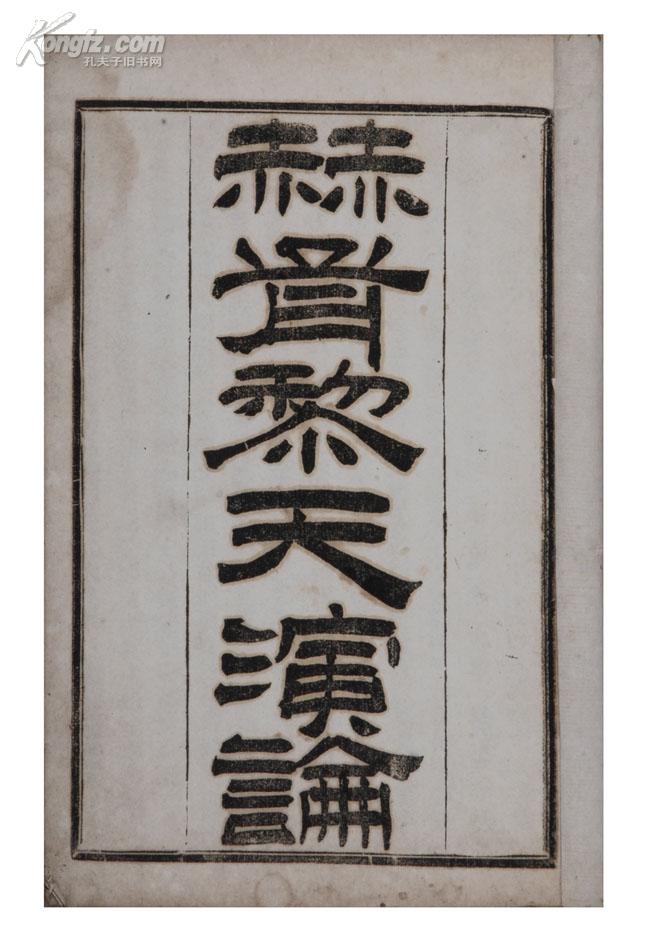 Kongfz.com
孔夫子旧书网
赫胥黎天演論